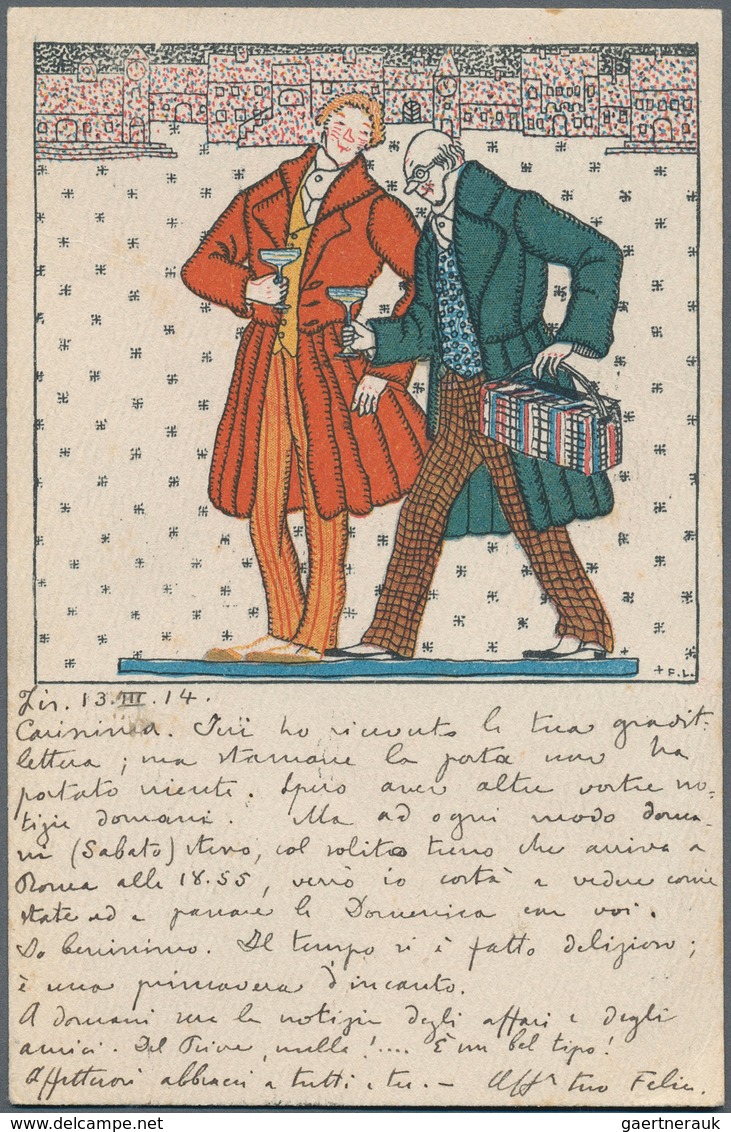 + F.L.
Fir. 13.III.14.
Carissima. Ieri ho ricevuto la tua gradit.
lettera; ma stamane la posta non ha
portato niente. Spero aver altre vostre no=
tizie domani. Ma ad ogni modo doma-
ni (Sabato) stesso, col solito treno che arriva a
Roma alle 18.55, verrò io costà a vedere come
state ed a passare la Domenica con voi.
Io benissimo. Il tempo si è fatto delizioso;
è una primavera d'incanto.
A domani sera le notizie degli affari e degli
amici. Del Piive, nulla!.... È un bel tipo!
Affettuosi abbracci a tutti e te. — Aff. tuo Felice.
delcampe.net
gaertnerauk